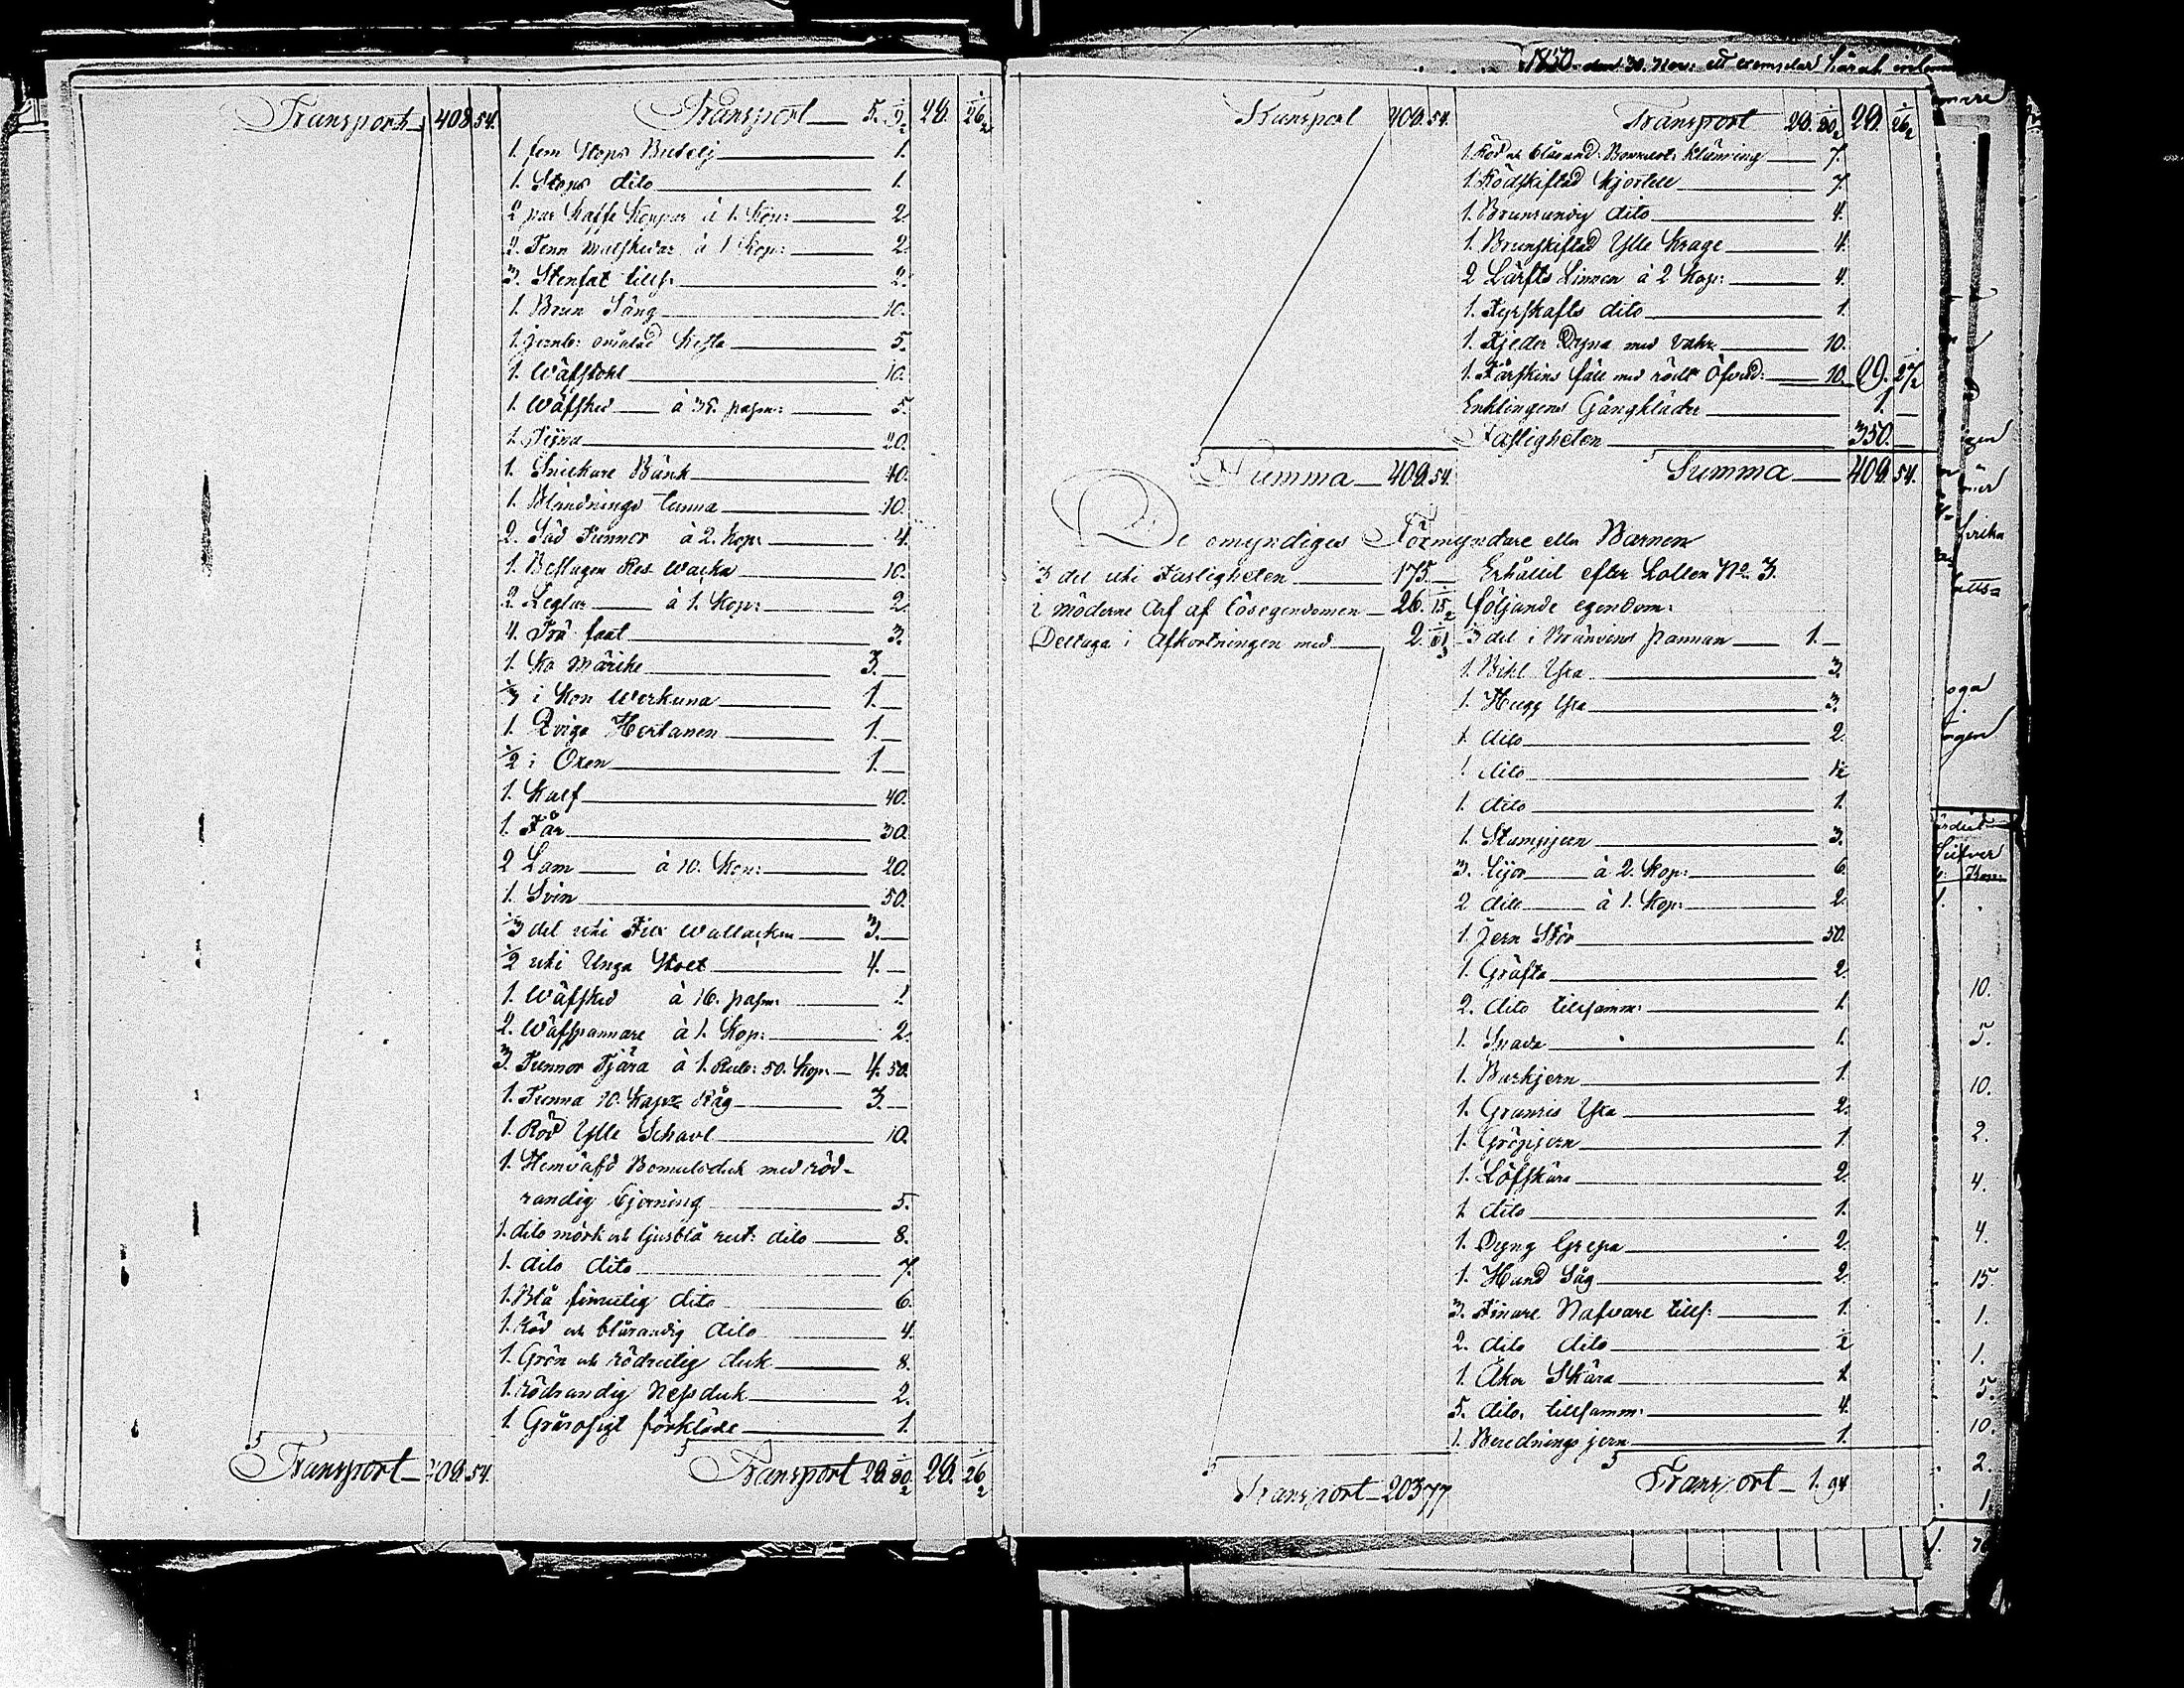 Transport 408. 54. Transport 5. 9 1/2 29. 26 1/2
1. fem Stops Butelj 1.
1. Stops dito 1.
2 par Kaffe Koppar à 1. Kop: 2.
2. Tenn à 1 Kop: 2.
3. Stenfat tills: 2.
1. Brun Säng 10.
1. omålad Kista 5.
1. Wäfstohl 10.
1. Wäfsked à 35. pasm: 5.
1. Tijna 20.
1. Snickare Bänk 40.
1. Blandnings tunna 10.
2. Säd Tunnor à 2. Kop: 4.
1. Beslagen Res 10.
2. Leglar à 1. Kop: 2
4. Trä faat 3.
1. Ko Märike 3.
1/3 i Kon Werkuna 1.
1. Qviga Hertanen 1.
1/2 i Oxen 1.
1. Kalf 40.
1. Får 30.
2 Lam à 10. Kop: 20.
1. Svin 50.
1/3 del uti Wallacken 3.
1/2 uti Unga Stoet 4.
1. Wäfsked à 16. pasm: 1.
2. Wäfspannare à 1. Kop: 2.
3. Tunnor Tjära à 1. Rub: 50. Kop: 4. 50.
1. Tunna 10. Kapr Råg 3.
1. Röd Ylle Schavl 10.
1. Hemväfd Bomulsduk med röd-
randig 5.
1. dito mörk och ljusblå rut: dito 8.
1. dito dito 7.
1. Blå finrutig dito 6.
1. Röd och blårandig dito 4.
1. Grön och rödrutig duk 8.
1. rödrandig Näsduk 2.
1. förkläde 1.
Transport 409. 54. Transport 29. 80 1/2 29. 26 1/2
1850 den 30. Nov: ett exemplar härah
Transport 409. 54. Transport 29. 80 1/2 29. 26 1/2
1. Röd och blårand: Bommest: Klänning 7.
1. Rödskiftad Kjortell 7.
1. Brunrandig dito 4.
1. Brunskiftad Ylle Krage 4.
2 Lärfts Linnen à 2 Kop: 4.
1. Fyrskafts dito 1.
1. Fjeder Dyna med 10.
1. Fårskins fäll med rödt Öfverd: 10. 29. 27 1/2
Enklingens Gångkläder 1.
Fastigheten 350.
Summa 409. 54. Summa 409. 54.
De omyndiges Förmyndare eller Barnen
1/3 del uti Fastigheten 175. Erhållit efter Lotten No 3.
i Möderne Arf af lösegendomen 26. 15 1/2 följande egendom:
Deltaga i Afkortningen med 2. 61 1/3 1/3 del i Bränvins pannan 1.
1. Bihl Yxa 3.
1. Hugg Yxa 3.
1. dito 2
1. dito 1/2
1. dito 1.
1. Stampjern 3.
3. Lijor à 2. Kop: 6
2 dito à 1. Kop: 2
1. Jern Stör 50.
1. Gräfta 2.
2. dito tillsamm: 1.
1. Snada 1.
1. Barkjern 1.
1. Granris Yxa 2.
1. Gröpjern 1.
1. Löfskära 2.
1. dito 1.
1. Dyng Grepa 2.
1. Hand Såg 2
3. Finare Nafvare tills: 1.
2. dito dito 1/2
1. Åker Skära 1
5. dito. tillsamm: 4.
1. Berednings jern 1.
Transport 203 77 Transport 1. 94